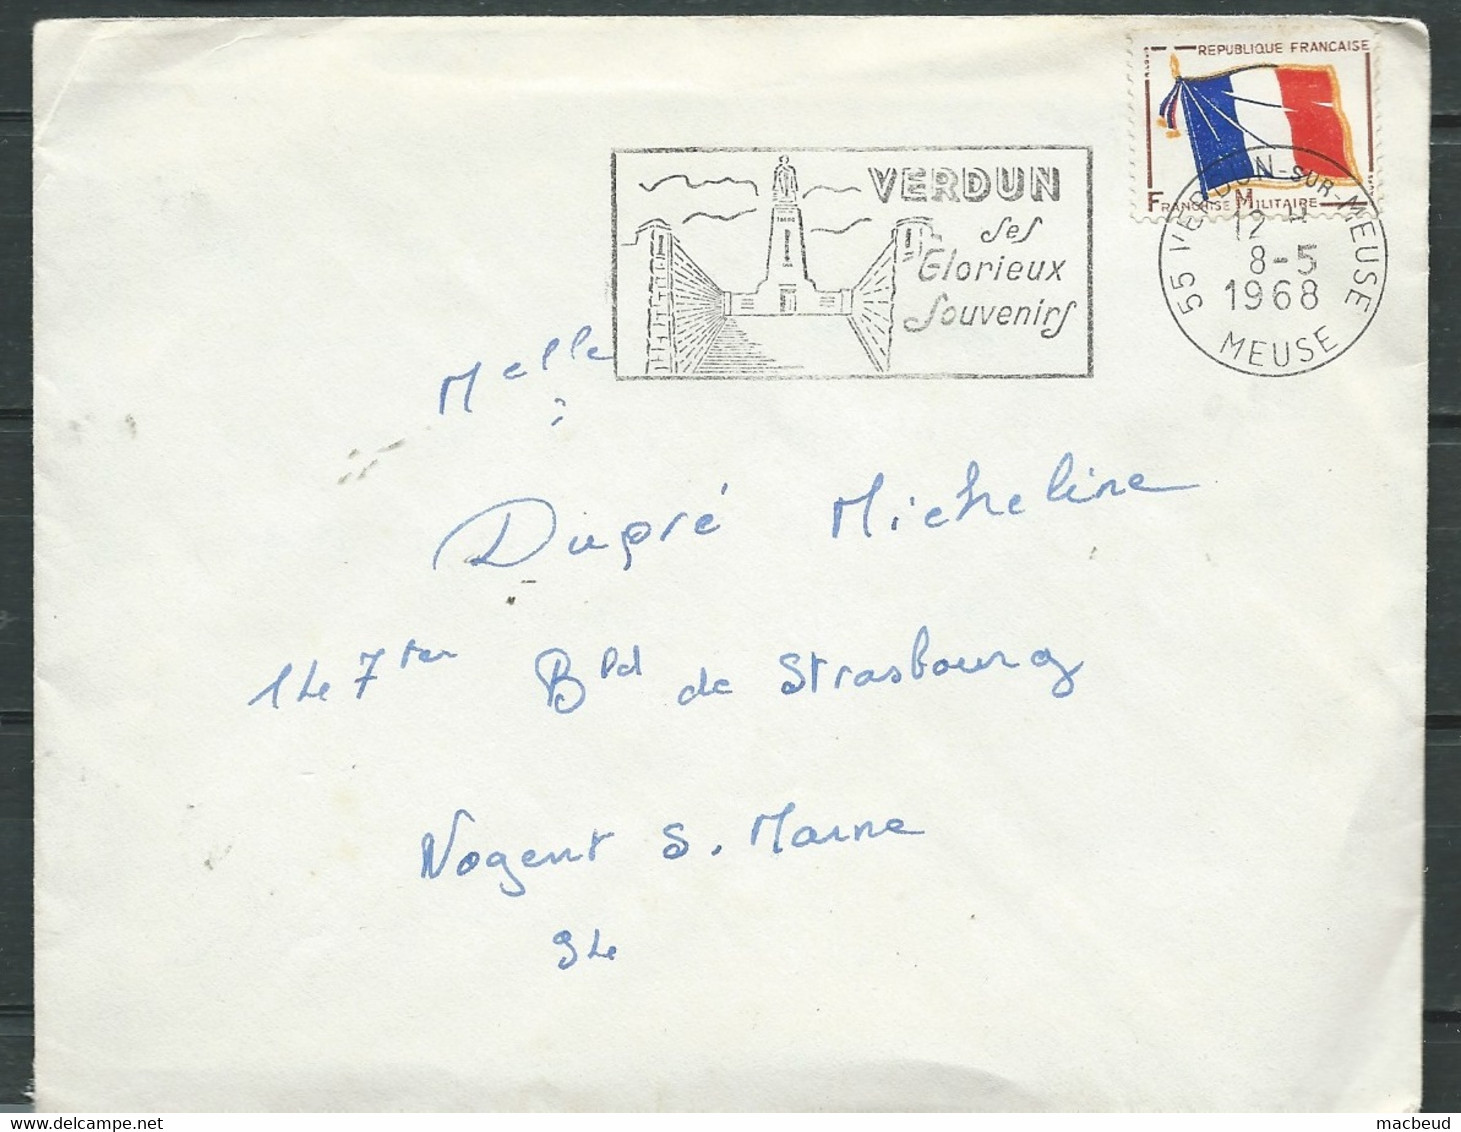 REPUBLIQUE FRANCAISE
FRANCHISE MILITAIRE
VERDUN
Ses
Glorieux
Souvenirs
55 VERDUN-SUR-MEUSE
12 H
8-5
1968
MEUSE
Melle
Dupré Micheline
147 ter Bld de Strasbourg
Nogent S. Marne
94
macbeud